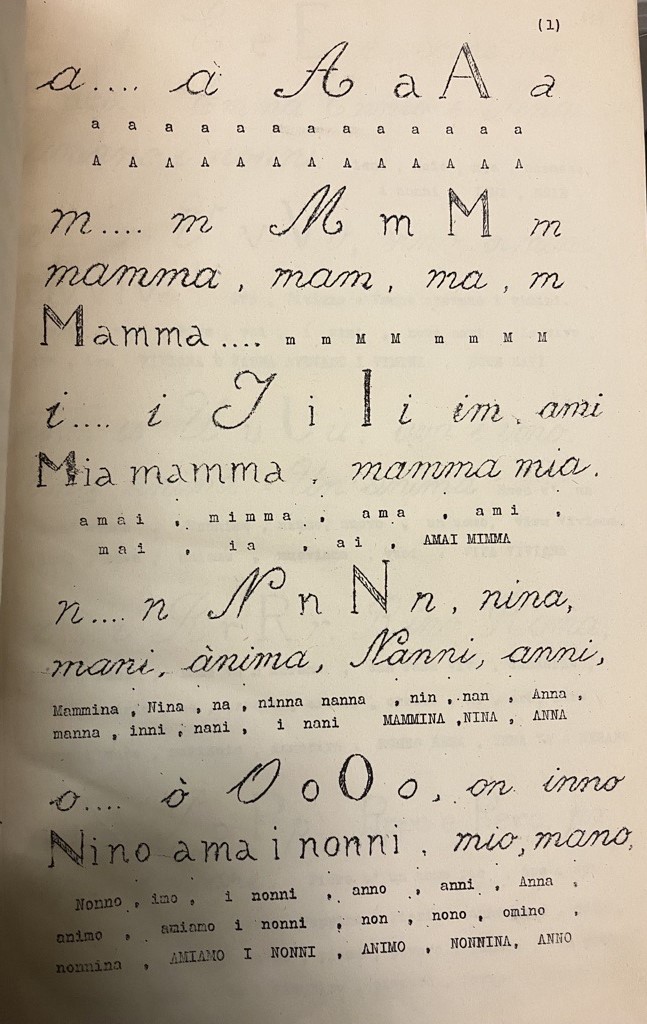 (1)
a.... à A a A a
a a a a a a a a a a a a a
A A A A A A A A A A A A A
m.... m M m M m
mamma, mam, ma, m
Mamma.... m m M M m m M M
i.... i I i I i im, ami
Mia mamma, mamma mia.
amai, mimma, ama, ami,
mai, ia, ai, AMAI MIMMA
n.... n N n N n, nina,
mani, ànima, Nanni, anni,
Mammina, Nina, na, ninna nanna, nin, nan, Anna,
manna, inni, nani, i nani MAMMINA, NINA, ANNA
o.... ò O o O o, on inno
Nino ama i nonni, mio, mano,
Nonno, imo, i nonni, anno, anni, Anna,
animo, amiamo i nonni, non, nono, omino,
nonnina, AMIAMO I NONNI, ANIMO, NONNINA, ANNO